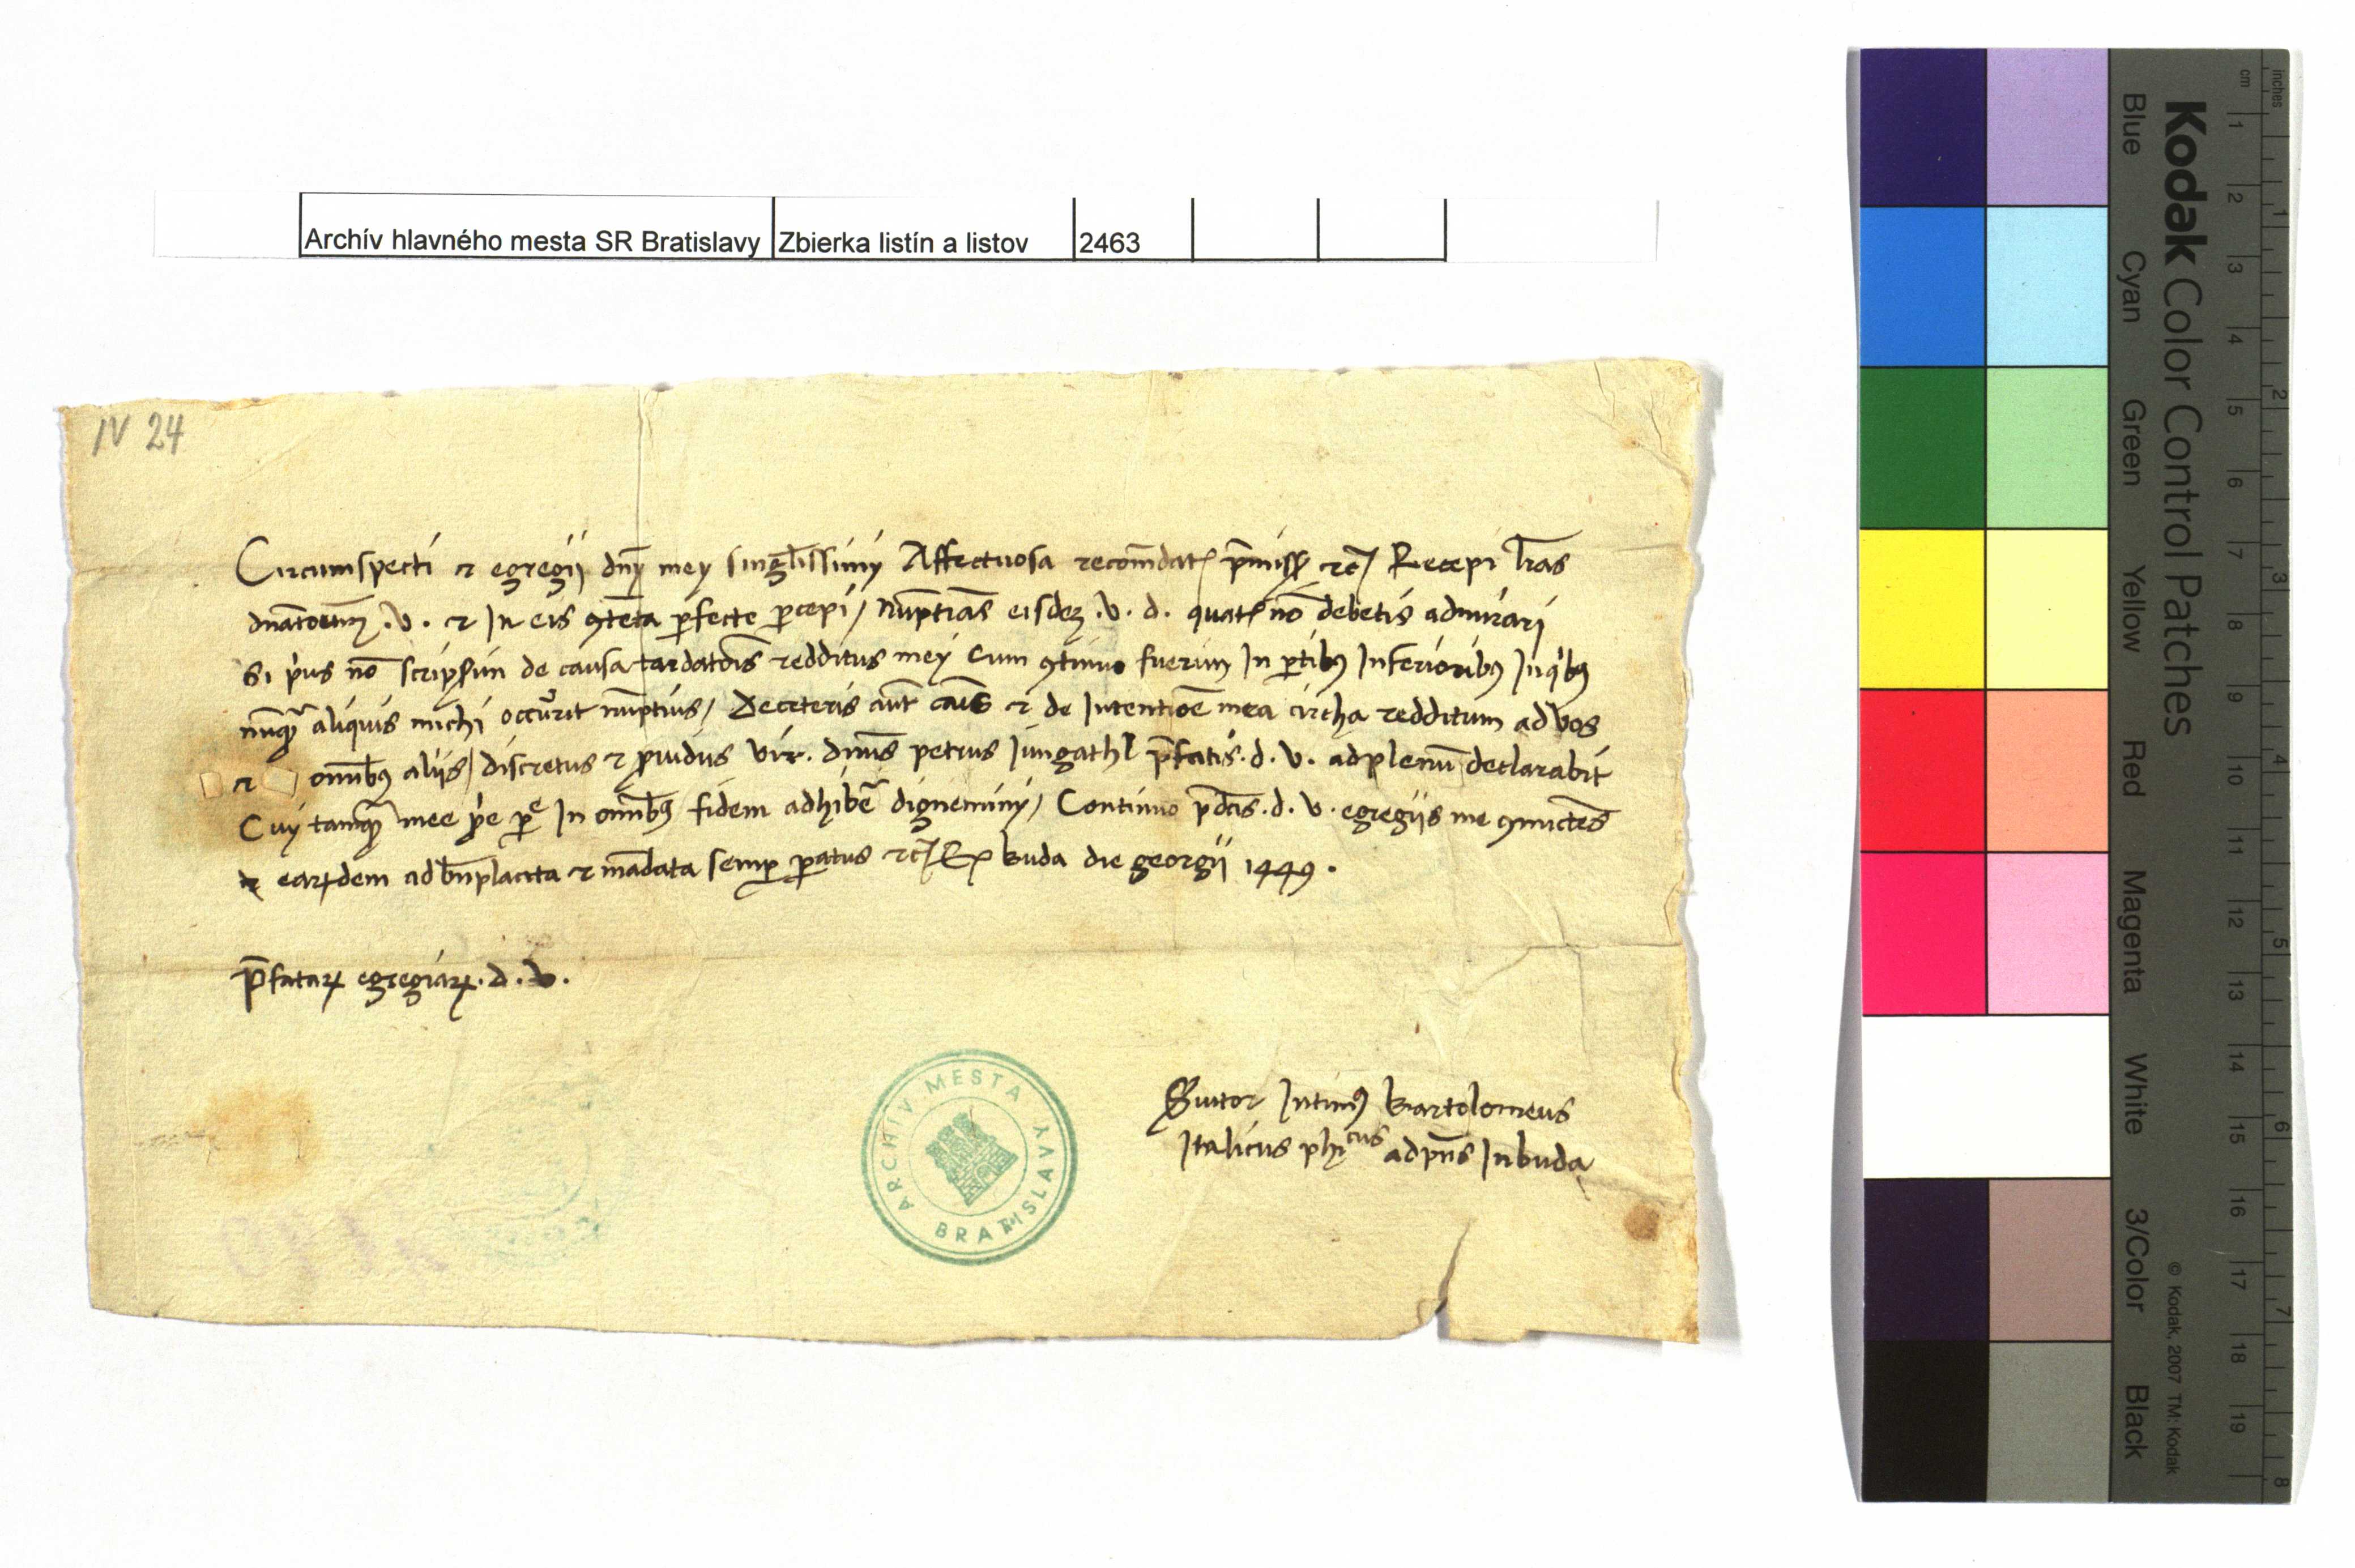 Archív hlavného mesta SR Bratislavy Zbierka listín a listov 2463
IV 24
Circumspecti et egregij dnj mey singlissimj Affectuosa recomdat pmiss etc Recepi lras
dnatonum .v. et In eis 9tenta pfecte pcepi / nuptias eisdez .v. d. quat no debetis admirarj
Si prius no scripsim de causa tardatois redditus mej Cum 9tinuo fuerim In ptib9 Inferiorib9 In qib9
nunq aliquis michi occurit nuptius / De ceteris aut cais et de Intentioe mea circha redditum ad vos
et omnib9 alijs / discretus et pvidus vir. dnus petrus Jungathl pfatis .d. v. ad plenu declarabit
Cuy tamq mee pe In omnib9 fidem adhibe digneminj / Continuo pdcis .d. v. egregijs me 9mictes
earundem ad bnplacita et madata semp patus etc Ex buda die georgij 1449.
Pfatar egregiar .d. v.
Intim9 bartolomeus
Italicus phicus ad pns In buda
ARCHÍV MESTA BRATISLAVY
Kodak Color Control Patches
Blue Cyan Green Yellow Red Magenta White 3/Color Black
© Kodak, 2007 TM: Kodak
inches 1 2 3 4 5 6 7 8
cm 1 2 3 4 5 6 7 8 9 10 11 12 13 14 15 16 17 18 19